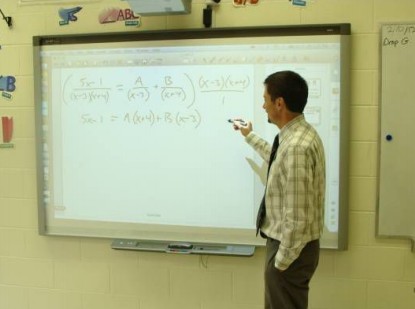 ABC
( (5x-1)/((x-3)(x+4)) = A/(x-3) + B/(x+4) ) (x-3)(x+4)/1
5x-1 = A(x+4)+B(x-3)